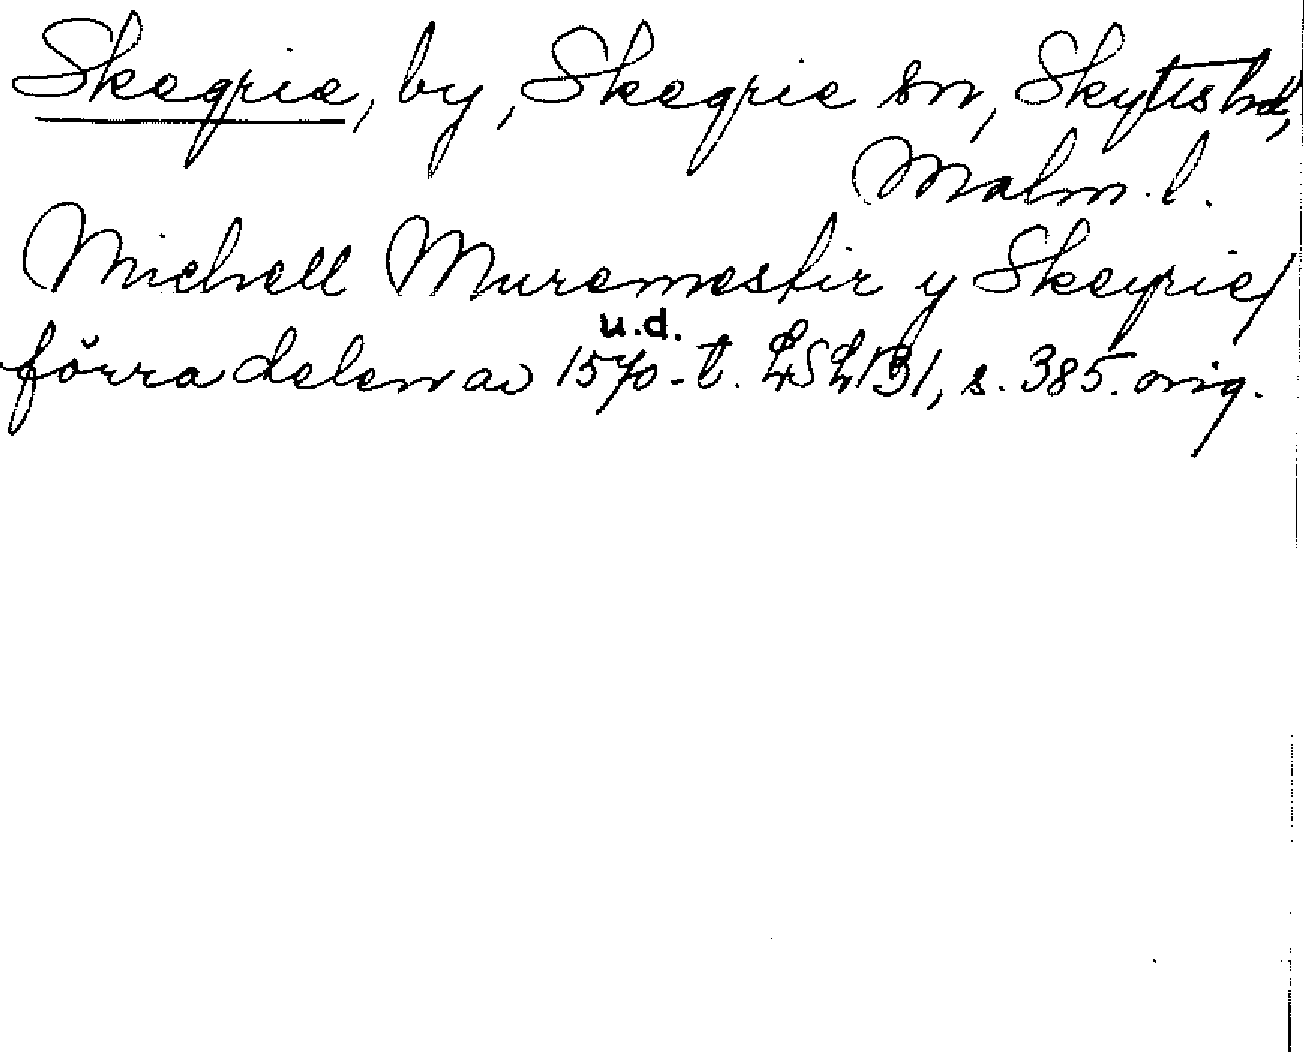 Skegrie, by, Skegrie sn, Skytts hd,
Malm. l.
Michell Muremestir y Skeyrie/
u.d.
förra delen av 1570-t. LSL 131, s. 385. orig.